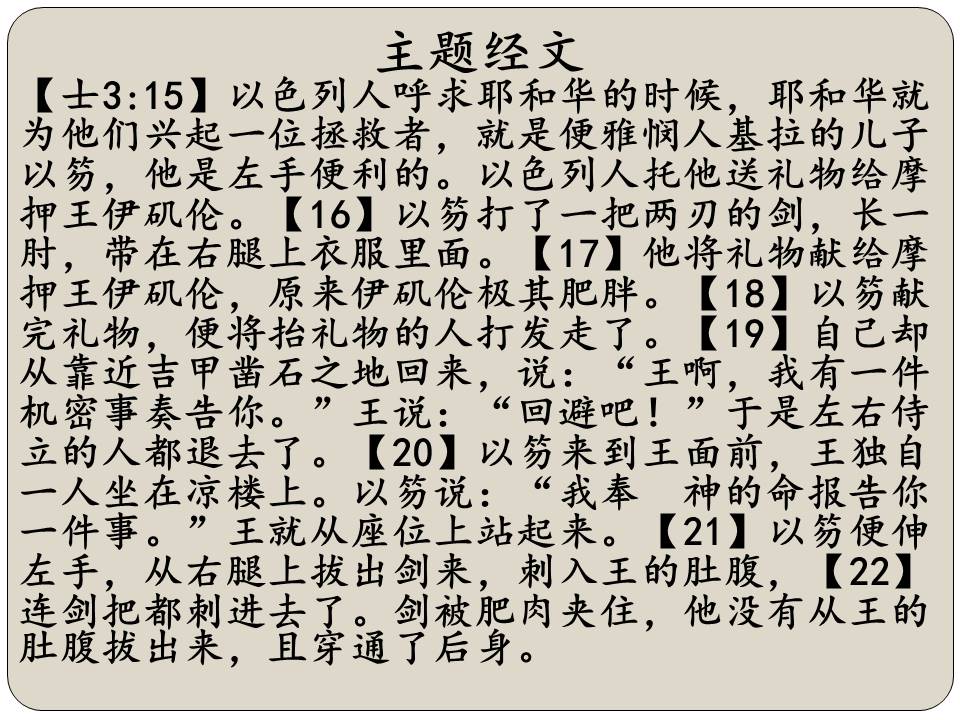 主题经文
【士3:15】以色列人呼求耶和华的时候，耶和华就
为他们兴起一位拯救者，就是便雅悯人基拉的儿子
以笏，他是左手便利的。以色列人托他送礼物给摩
押王伊矶伦。【16】以笏打了一把两刃的剑，长一
肘，带在右腿上衣服里面。【17】他将礼物献给摩
押王伊矶伦，原来伊矶伦极其肥胖。【18】以笏献
完礼物，便将抬礼物的人打发走了。【19】自己却
从靠近吉甲凿石之地回来，说：“王啊，我有一件
机密事奏告你。”王说：“回避吧！”于是左右侍
立的人都退去了。【20】以笏来到王面前，王独自
一人坐在凉楼上。以笏说：“我奉　神的命报告你
一件事。”王就从座位上站起来。【21】以笏便伸
左手，从右腿上拔出剑来，刺入王的肚腹，【22】
连剑把都刺进去了。剑被肥肉夹住，他没有从王的
肚腹拔出来，且穿通了后身。